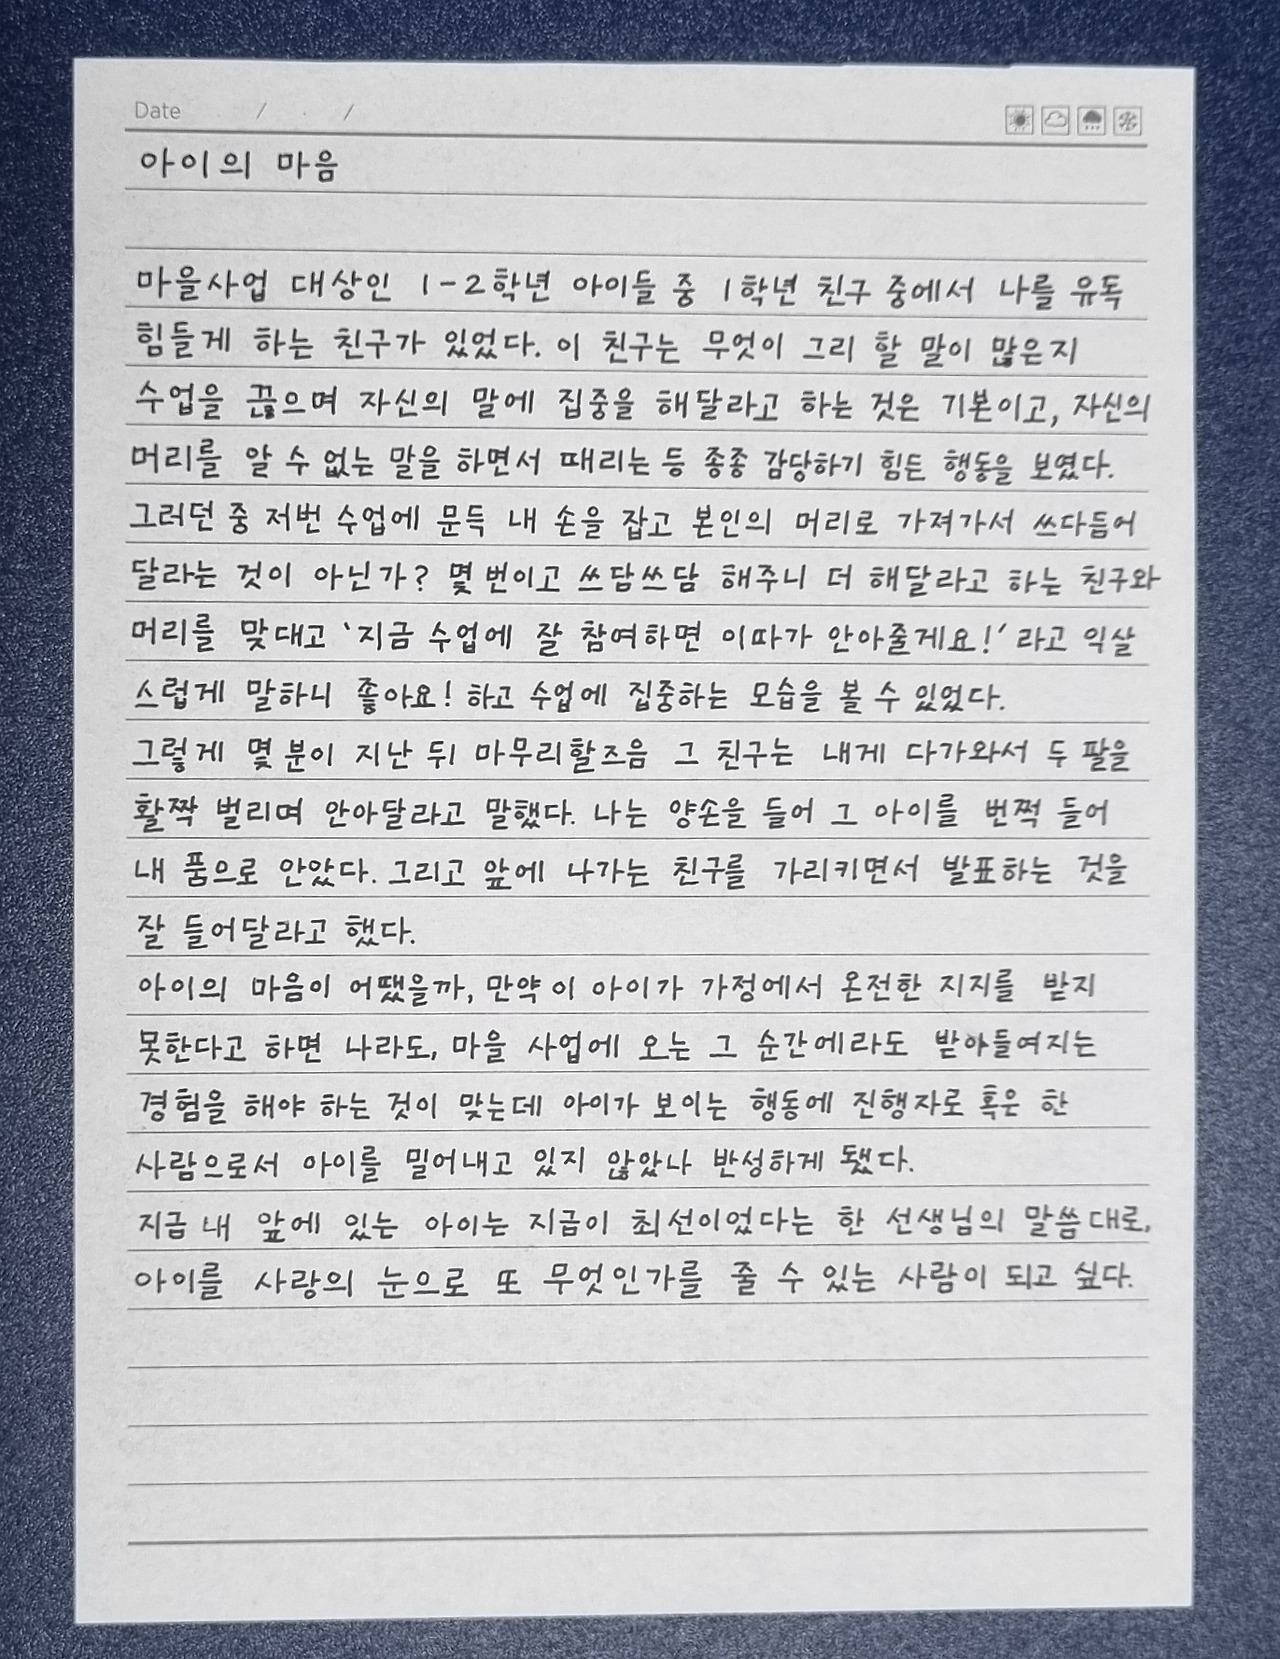 Date / /
아이의 마음
마을사업 대상인 1-2학년 아이들 중 1학년 친구 중에서 나를 유독
힘들게 하는 친구가 있었다. 이 친구는 무엇이 그리 할 말이 많은지
수업을 끊으며 자신의 말에 집중을 해달라고 하는 것은 기본이고, 자신의
머리를 알 수 없는 말을 하면서 때리는 등 종종 감당하기 힘든 행동을 보였다.
그러던 중 저번 수업에 문득 내 손을 잡고 본인의 머리로 가져가서 쓰다듬어
달라는 것이 아닌가? 몇 번이고 쓰담쓰담 해주니 더 해달라고 하는 친구와
머리를 맞대고 '지금 수업에 잘 참여하면 이따가 안아줄게요!' 라고 익살
스럽게 말하니 좋아요! 하고 수업에 집중하는 모습을 볼 수 있었다.
그렇게 몇 분이 지난 뒤 마무리할즈음 그 친구는 내게 다가와서 두 팔을
활짝 벌리며 안아달라고 말했다. 나는 양손을 들어 그 아이를 번쩍 들어
내 품으로 안았다. 그리고 앞에 나가는 친구를 가리키면서 발표하는 것을
잘 들어달라고 했다.
아이의 마음이 어땠을까, 만약 이 아이가 가정에서 온전한 지지를 받지
못한다고 하면 나라도, 마을 사업에 오는 그 순간에라도 받아들여지는
경험을 해야 하는 것이 맞는데 아이가 보이는 행동에 진행자로 혹은 한
사람으로서 아이를 밀어내고 있지 않았나 반성하게 됐다.
지금 내 앞에 있는 아이는 지금이 최선이었다는 한 선생님의 말씀대로,
아이를 사랑의 눈으로 또 무엇인가를 줄 수 있는 사람이 되고 싶다.